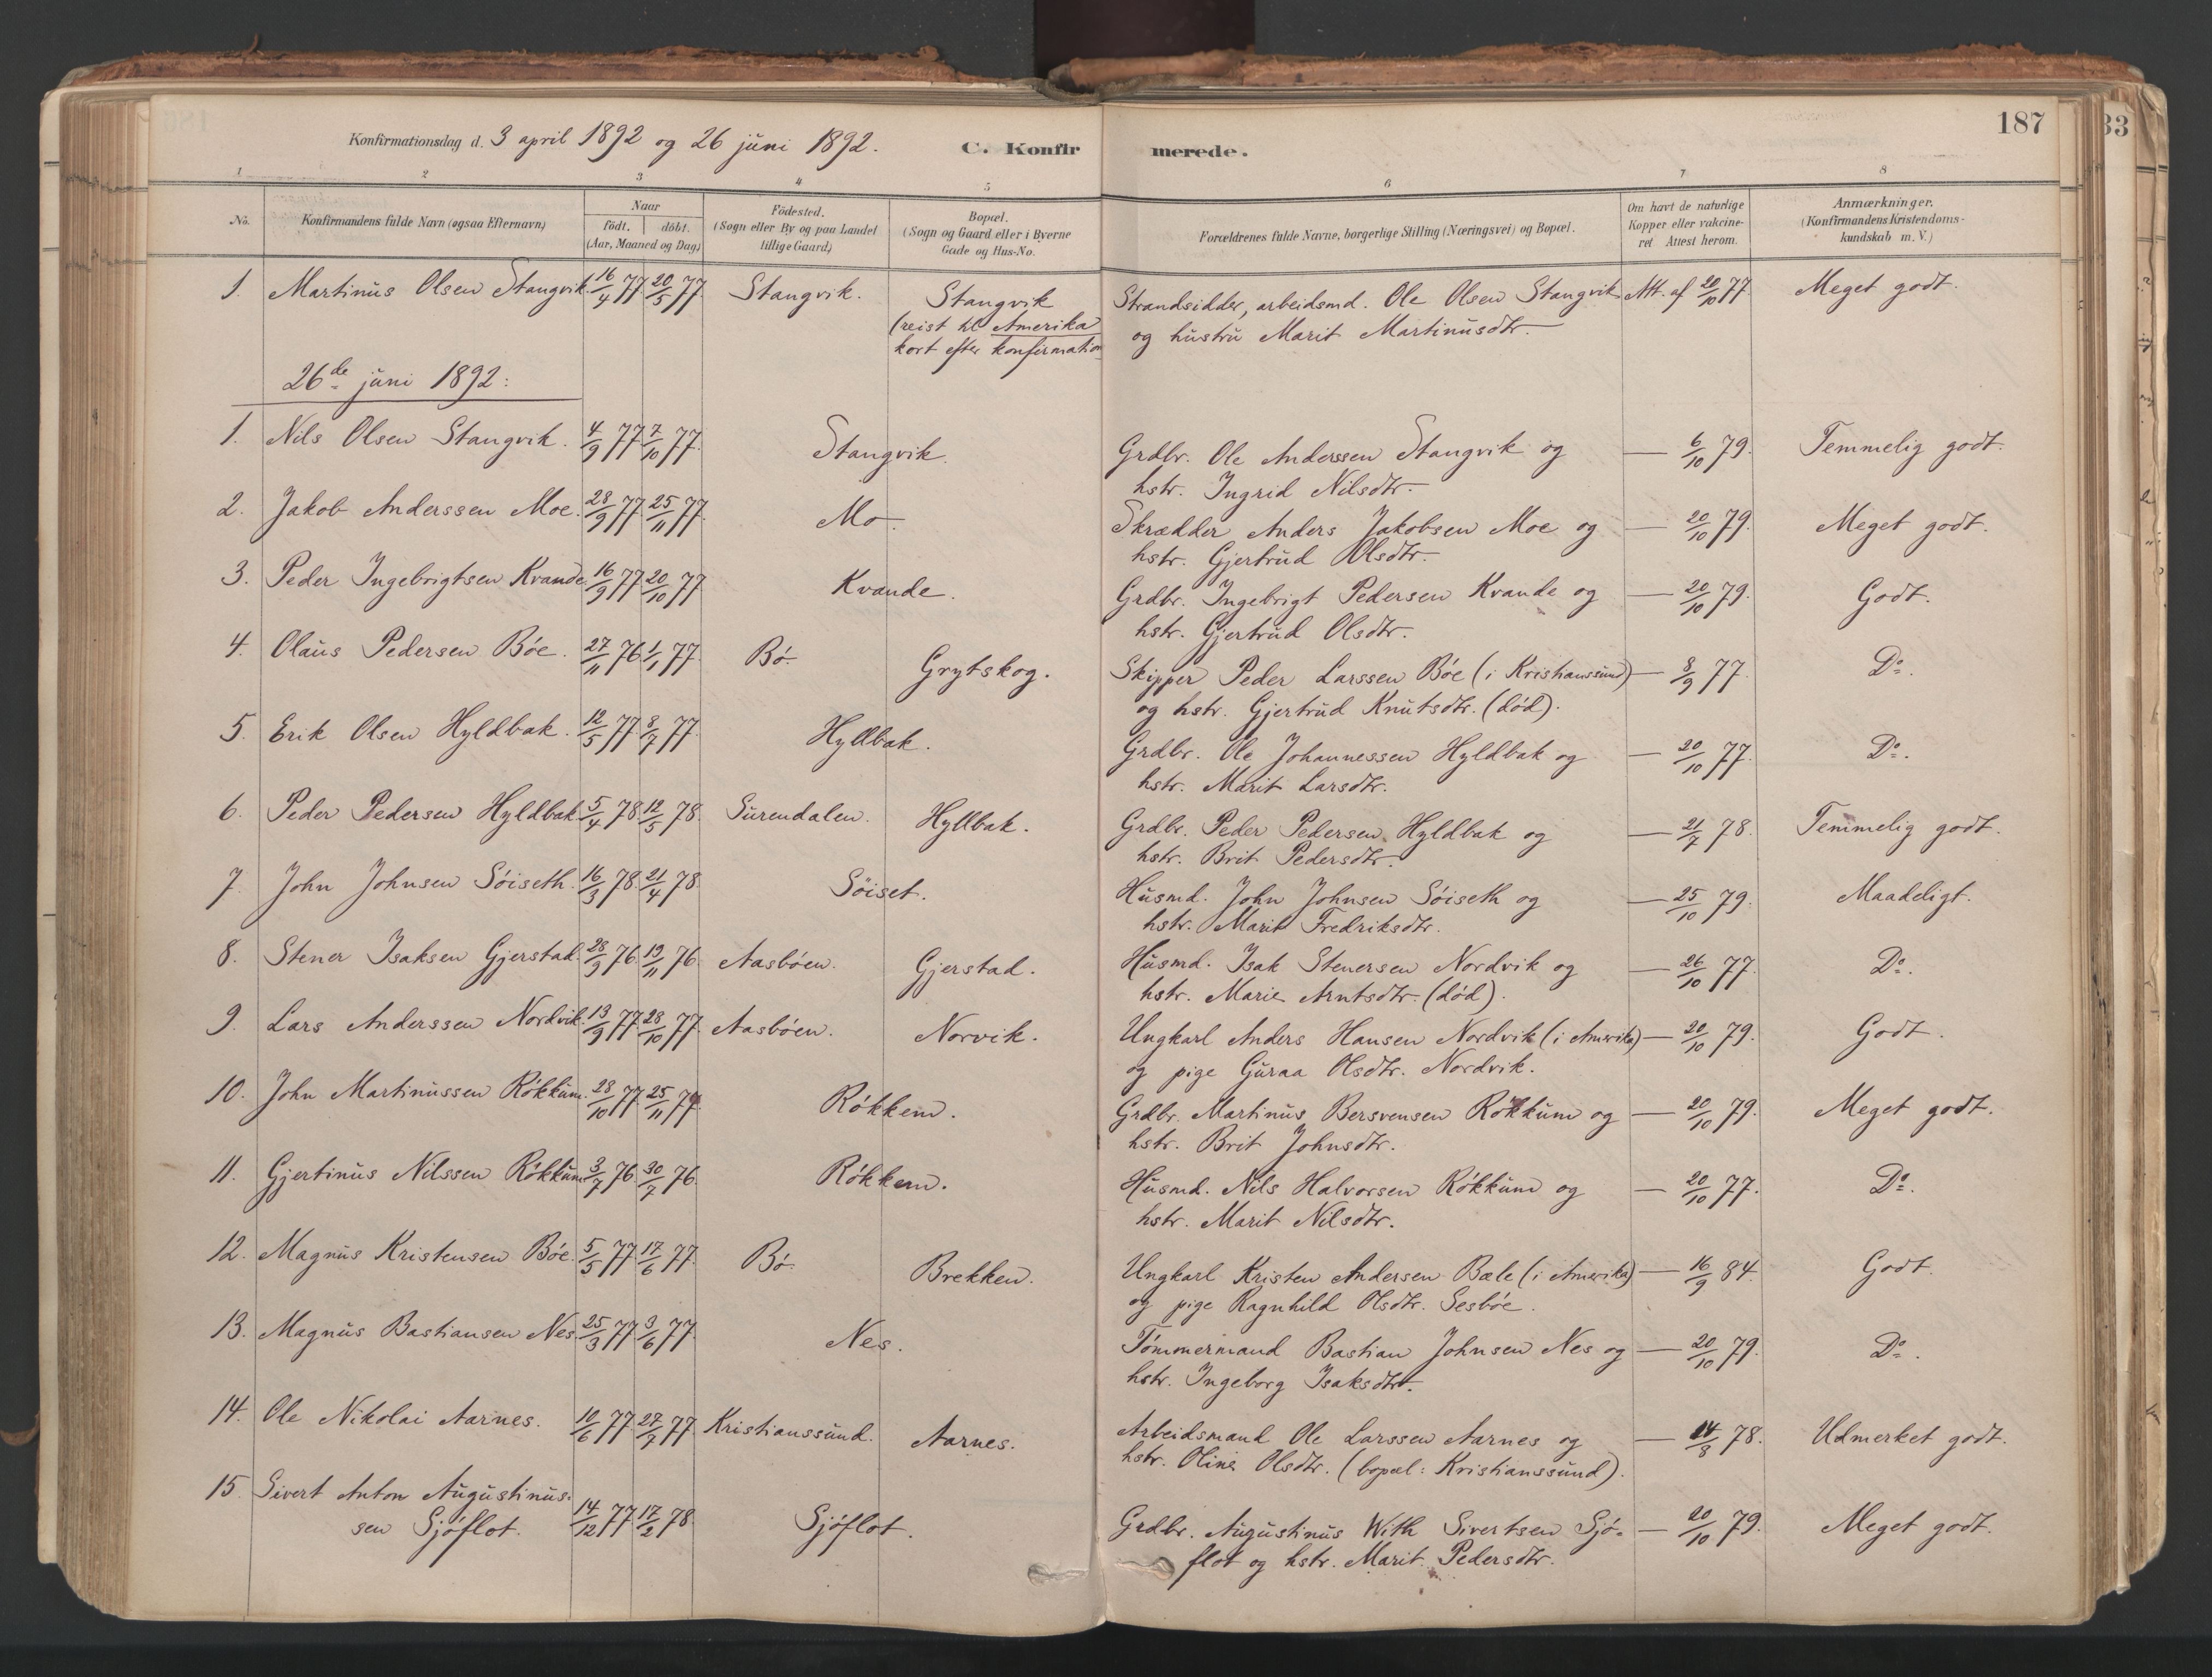 187
33
Konfirmationsdag d. 3 april 1892 og 26 juni 1892.
C. Konfirmerede.
1 2 3 4 5 6 7 8
No.
Konfirmandens fulde Navn (ogsaa Efternavn)
Naar
födt. döbt.
(Aar, Maaned og Dag)
Födested.
(Sogn eller By og paa Landet
tillige Gaard)
Bopæl.
(Sogn og Gaard eller i Byerne
Gade og Hus-No.
Forældrenes fulde Navne, borgerlige Stilling (Næringsvei) og Bopæl.
Om havt de naturlige
Kopper eller vakcine-
ret Attest herom.
Anmærkninger.
(Konfirmandens Kristendoms-
kundskab m. V.)
1. Martinus Olsen Stangvik 16/4 77 20/5 77. Stangvik. Stangvik Strandsidder, arbeidsmd. Ole Olsen Stangvik Att. af 20/10 77 Meget godt.
(reist til Amerika og hustru Marit Martinusdtr.
kort efter konfirmation
26de juni 1892:
1. Nils Olsen Stangvik. 4/9 77 7/10 77. Stangvik. Grdbr. Ole Anderssen Stangvik og — 6/10 79. Temmelig godt.
hstr. Ingrid Nilsdtr.
2. Jakob Anderssen Moe. 28/9 77 25/11 77. Mo. Skrædder Anders Jakobsen Moe og — 20/10 79. Meget godt.
hstr. Gjertrud Olsdtr.
3. Peder Ingebrigtsen Kvande 16/9 77 20/10 77 Kvande. Grdbr. Ingebrigt Pedersen Kvande og — 20/10 79. Godt.
hstr. Gjertrud Olsdtr.
4. Olaus Pedersen Böe. 27/11 76 1/1 77. Bö. Grytskog. Skipper Peder Larssen Böe (i Kristianssund) — 8/9 77. Do.
og hstr. Gjertrud Knutsdtr. (död).
5. Erik Olsen Hyldbak. 12/5 77 8/7 77. Hyllbak. Grdbr. Ole Johannessen Hyldbak og — 20/10 77. Do.
hstr. Marit Larsdtr.
6. Peder Pedersen Hyldbak 5/4 78 12/5 78. Surendalen. Hyllbak. Grdbr. Peder Pedersen Hyldbak og — 21/7 78. Temmelig godt.
hstr. Brit Pedersdtr.
7. John Johnsen Söiseth. 16/3 78. 21/4 78. Söiset. Husmd. John Johnsen Söiseth og — 25/10 79. Maadeligt.
hstr. Marit Fredriksdtr.
8. Stener Isaksen Gjerstad. 28/9 76. 19/11 76. Aasböen. Gjerstad. Husmd. Isak Stenersen Nordvik og — 26/10 77. Do.
hstr. Marie Arntsdtr. (död).
9. Lars Anderssen Nordvik. 13/9 77 28/10 77. Aasböen. Norvik. Ungkarl Anders Hansen Nordvik (i Amerika) — 20/10 79. Godt.
og pige Guraa Olsdtr. Nordvik.
10. John Martinussen Rökkum. 28/10 77. 25/11 77. Rökkem. Grdbr. Martinus Bersvensen Rökkum og — 20/10 79. Meget godt.
hstr. Brit Johnsdtr.
11. Gjertinus Nilssen Rökkum 3/7 76. 30/7 76. Rökkem. Husmd. Nils Halvorsen Rökkum og — 20/10 77. Do.
hstr. Marit Nilsdtr.
12. Magnus Kristensen Böe. 5/5 77. 17/6 77. Bö. Brekken. Ungkarl Kristen Andersen Bæle (i Amerika) — 16/9 84. Godt.
og pige Ragnhild Olsdtr. Sesböe.
13. Magnus Bastiansen Nes. 25/3 77 3/6 77. Nes. Tömmermand Bastian Johnsen Nes og — 20/10 79. Do.
hstr. Ingeborg Isaksdtr.
14. Ole Nikolai Aarnes. 10/6 77. 27/7 77. Kristianssund. Aarnes. Arbeidsmand Ole Larssen Aarnes og — 14/8 78. Udmerket godt.
hstr. Oline Olsdtr. (bopæl: Kristianssund).
15. Sivert Anton Augustinus-
sen Sjöflot. 14/12 77. 17/2 78. Sjöflot. Grdbr. Augustinus With Sivertsen Sjö- — 20/10 79. Meget godt.
flot og hstr. Marit Pedersdtr.